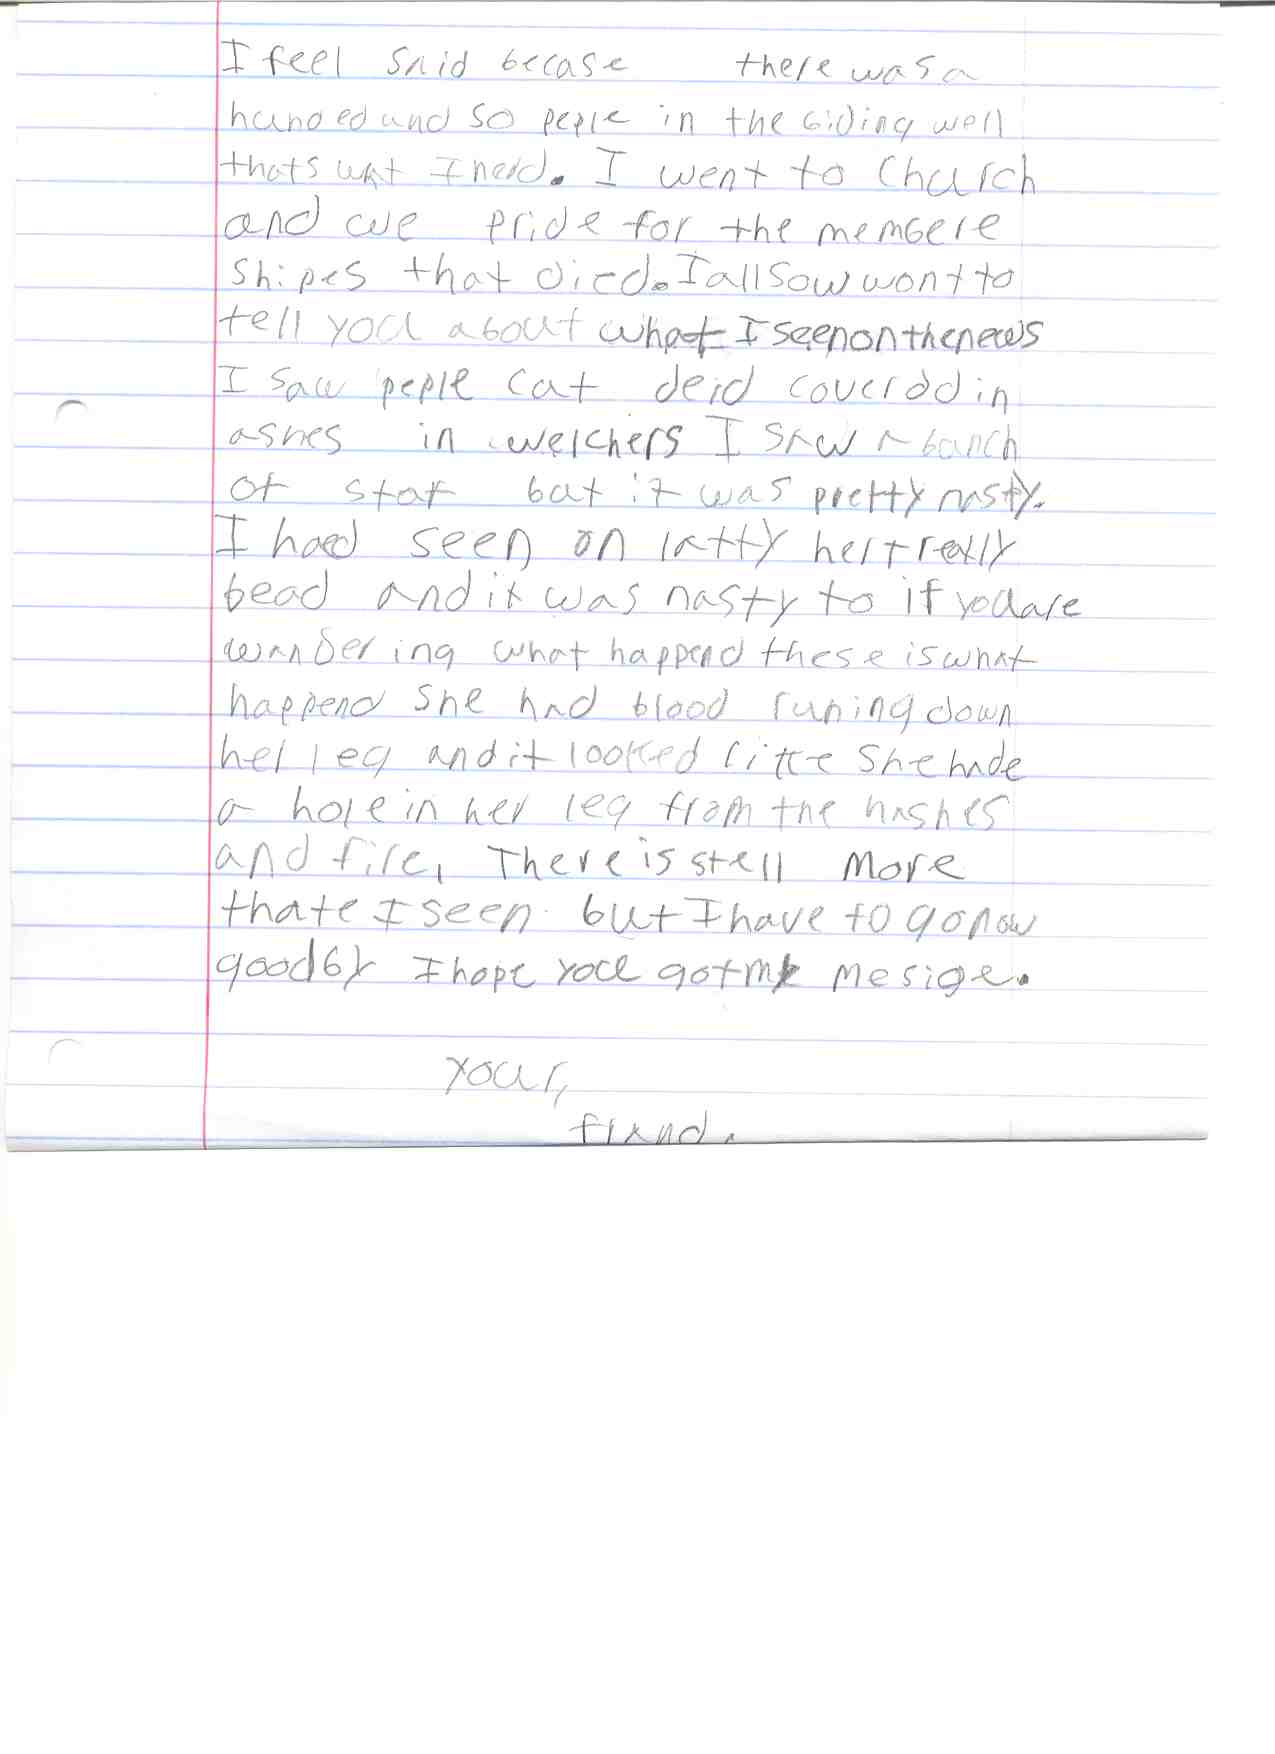 I feel said becase there was a
hunded and so peple in the biding well
thats wat I herd. I went to Church
and we pride for the membere
shipes that died. I all sow wont to
tell you about what I seen on the news
I saw peple cat deid coverdd in
ashes in welchers I saw a bunch
of stof but it was pretty nasty.
I haed seen on latty hert really
bead and it was nasty to if you are
wandering what happend these is what
happend She had blood runing down
her leg and it looked litke She hade
a hole in her leg from the hashes
and fire, There is stell more
thate I seen but I have to go now
goodby I hope you got my mesige.
your,
frand.